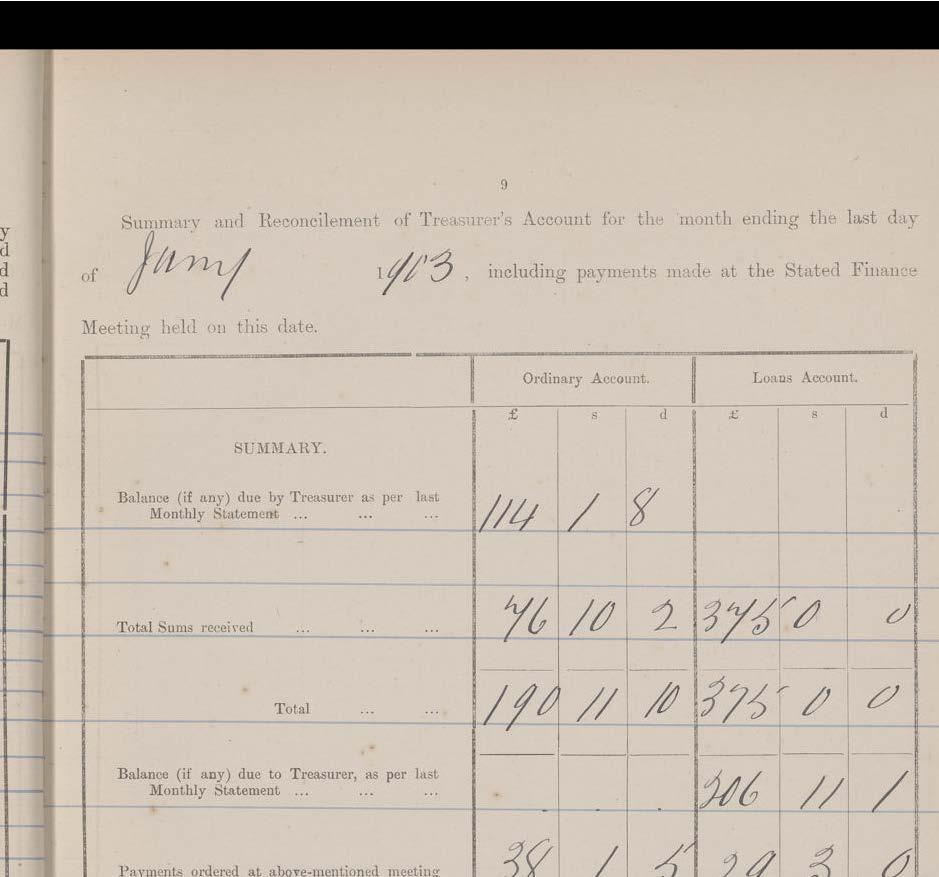 y
d
d
d
9
Summary and Reconcilement of Treasurer's Account for the month ending the last day
of Jany 1903, including payments made at the Stated Finance
Meeting held on this date.
Ordinary Account. Loans Account.
£ s d £ s d
SUMMARY.
Balance (if any) due by Treasurer as per last
Monthly Statement ... ... ... 114 1 8
Total Sums received ... ... ... 76 10 2 375 0 0
Total ... ... 190 11 10 375 0 0
Balance (if any) due to Treasurer, as per last
Monthly Statement ... ... ... . . . 206 11 1
Payments ordered at above-mentioned meeting 38 1 5 29 3 0